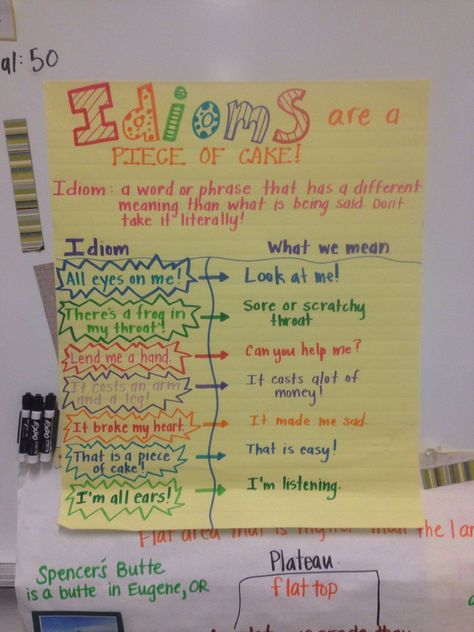 al: 50
Idioms are a
PIECE OF CAKE!
Idiom: a word or phrase that has a different
meaning than what is being said. Don't
take it literally!
Idiom What we mean
All eyes on me! Look at me!
There's a frog in
my throat! Sore or scratchy
throat
Lend me a hand. Can you help me?
It costs an arm
and a leg! It costs alot of
money!
It broke my heart. It made me sad.
That is a piece
of cake! That is easy!
I'm all ears! I'm listening.
Flat area that is higher than the lan
Spencer's Butte
is a butte in Eugene, OR
Plateau
flat top